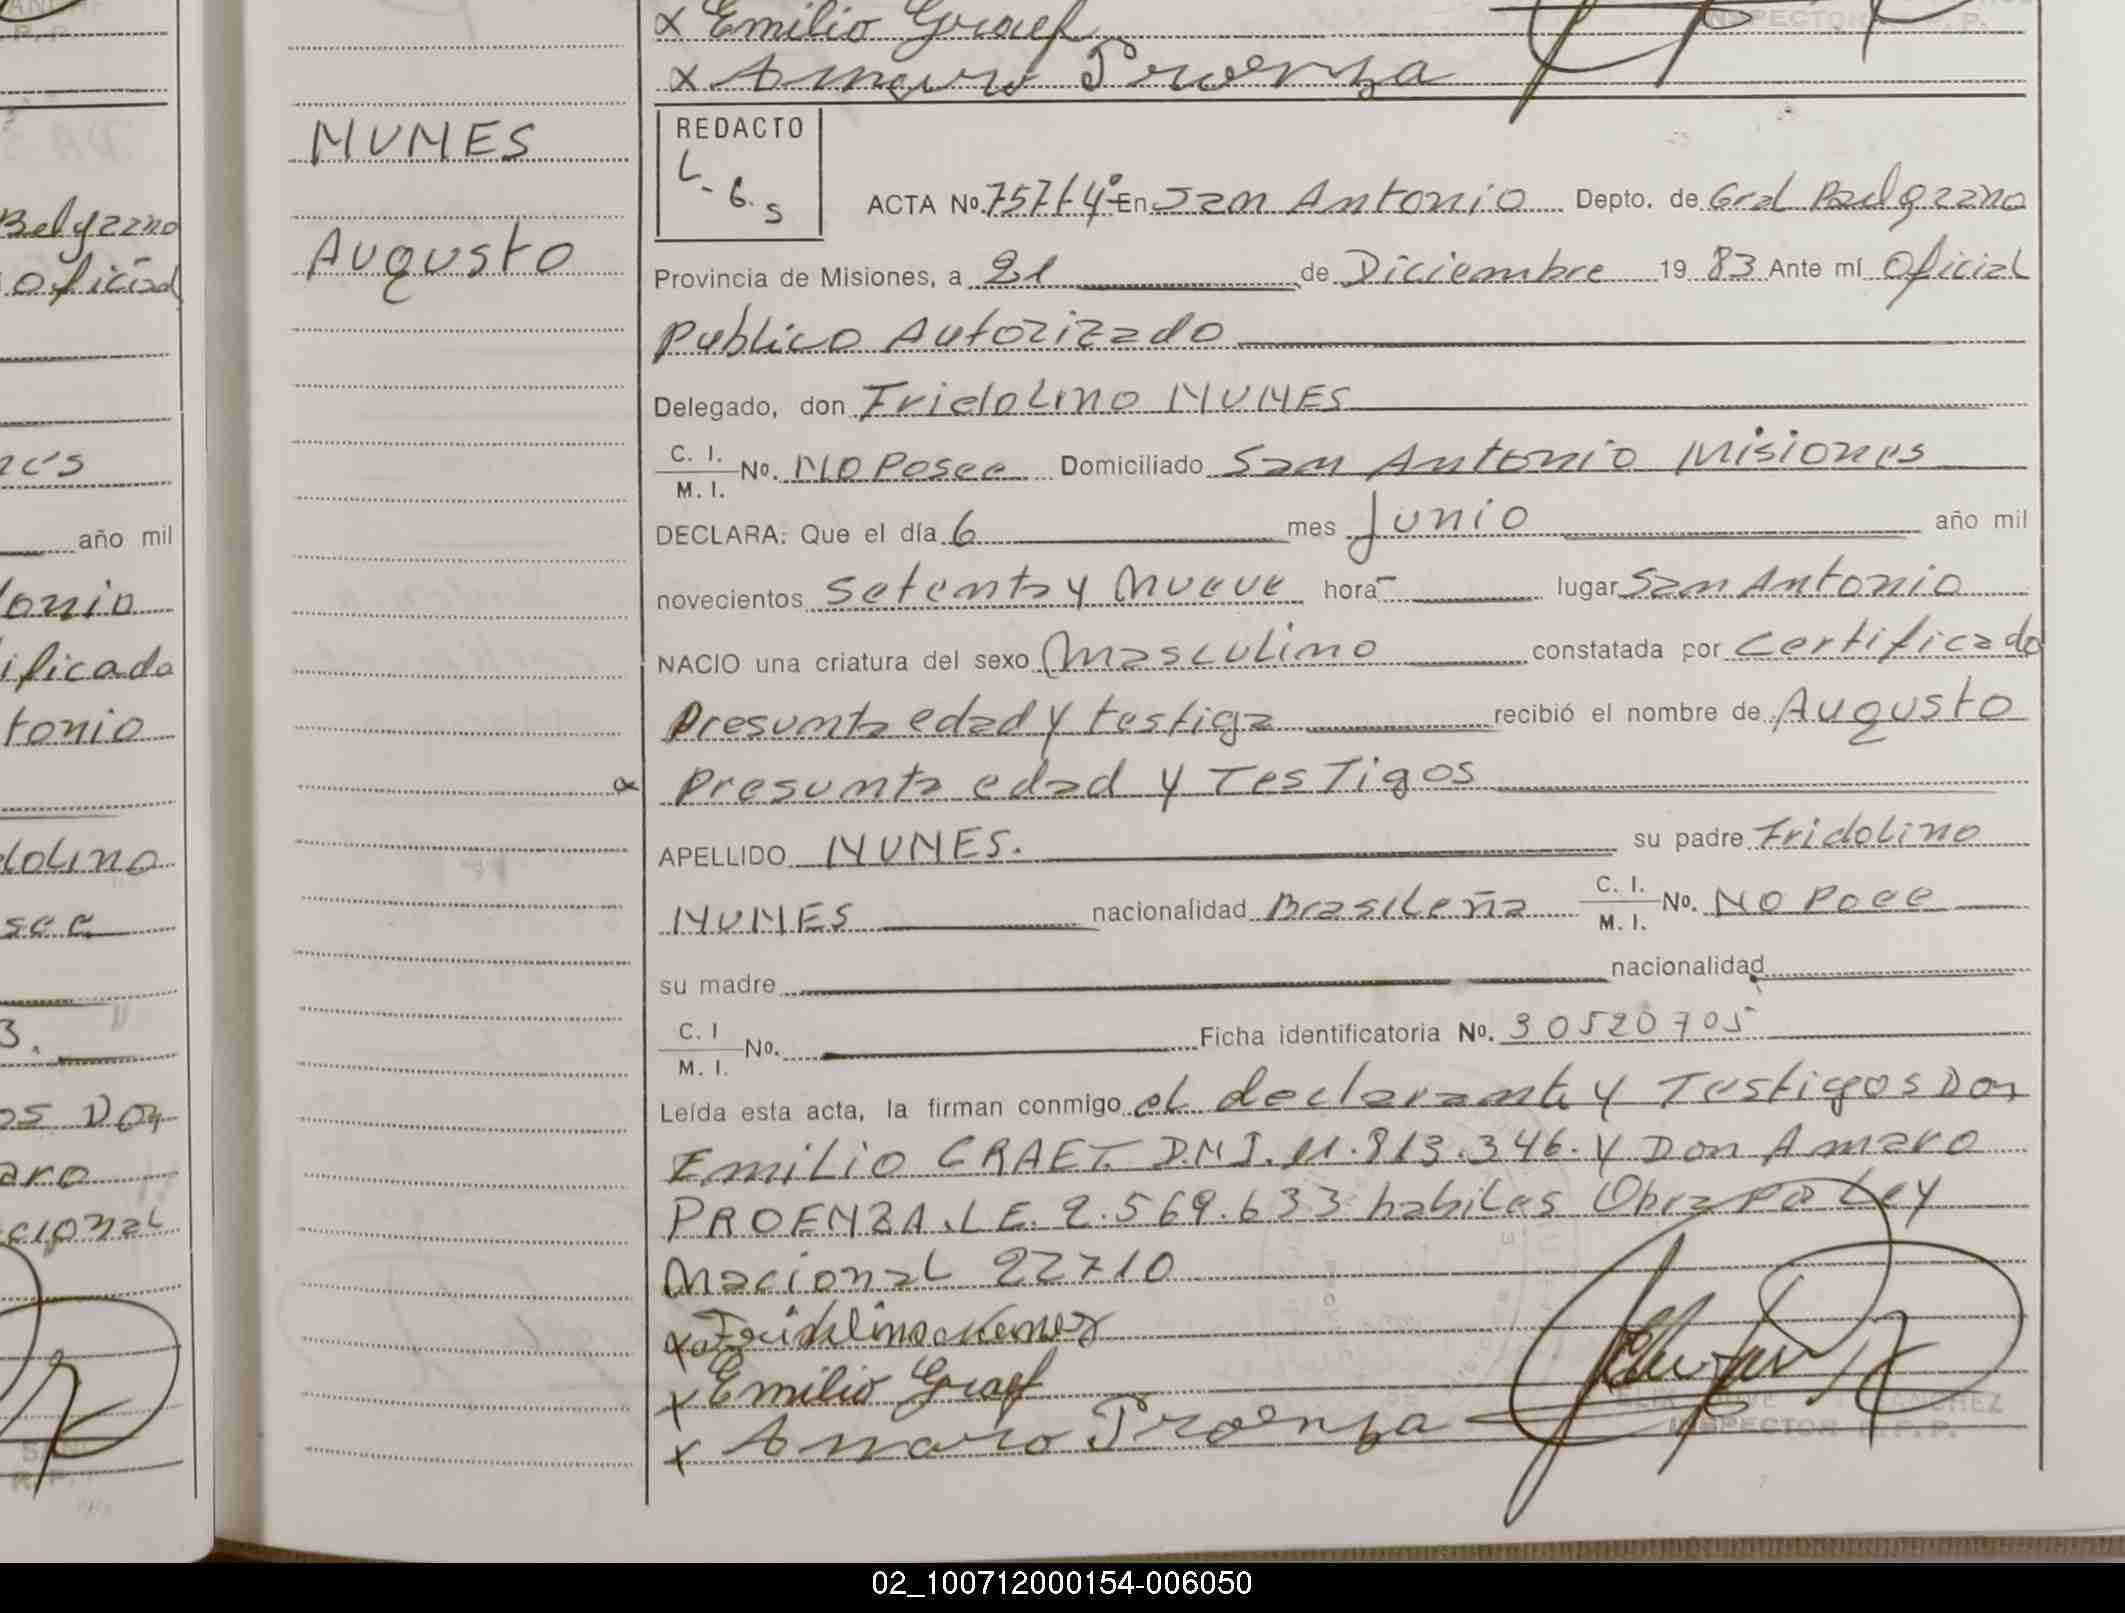 x Emilio Graef
x Amaro Proenza
INSPECTOR R. P. P.
NUNES
Augusto
REDACTO
L-6.S
ACTA No. En San Antonio Depto. de Gral Belgrano
Provincia de Misiones, a 21 de Diciembre 19 83 Ante mí Oficial
Publico Autorizado
Delegado, don Fridolino NUNES
C. I.
M. I. No. NO Posee Domiciliado San Antonio Misiones
DECLARA: Que el día 6 mes Junio año mil
novecientos setenta y nueve hora - lugar San Antonio
NACIO una criatura del sexo Masculino constatada por certificado
Presunta edad y testiga recibió el nombre de Augusto
Presunta edad y Testigos
APELLIDO NUNES. su padre Fridolino
NUNES nacionalidad Brasileña C. I.
M. I. No. NO Poee
su madre nacionalidad
C. I
M. I. No. Ficha identificatoria No. 30520705
Leída esta acta, la firman conmigo el declarante y Testigos Don
Emilio GRAEF. D.N.I. 11.813.346. Y Don Amaro
PROENZA. L.E. 2.569.633 habiles Obra Po Ley
Nacional 22710
x Fridolino Nunes
x Emilio Graef
x Amaro Proenza
SANCHEZ
INSPECTOR R. P. P.
Belgrano
Oficial
año mil
onio
ificado
tonio
dolino
see
3.
os Don
aro
cional
02_100712000154-006050